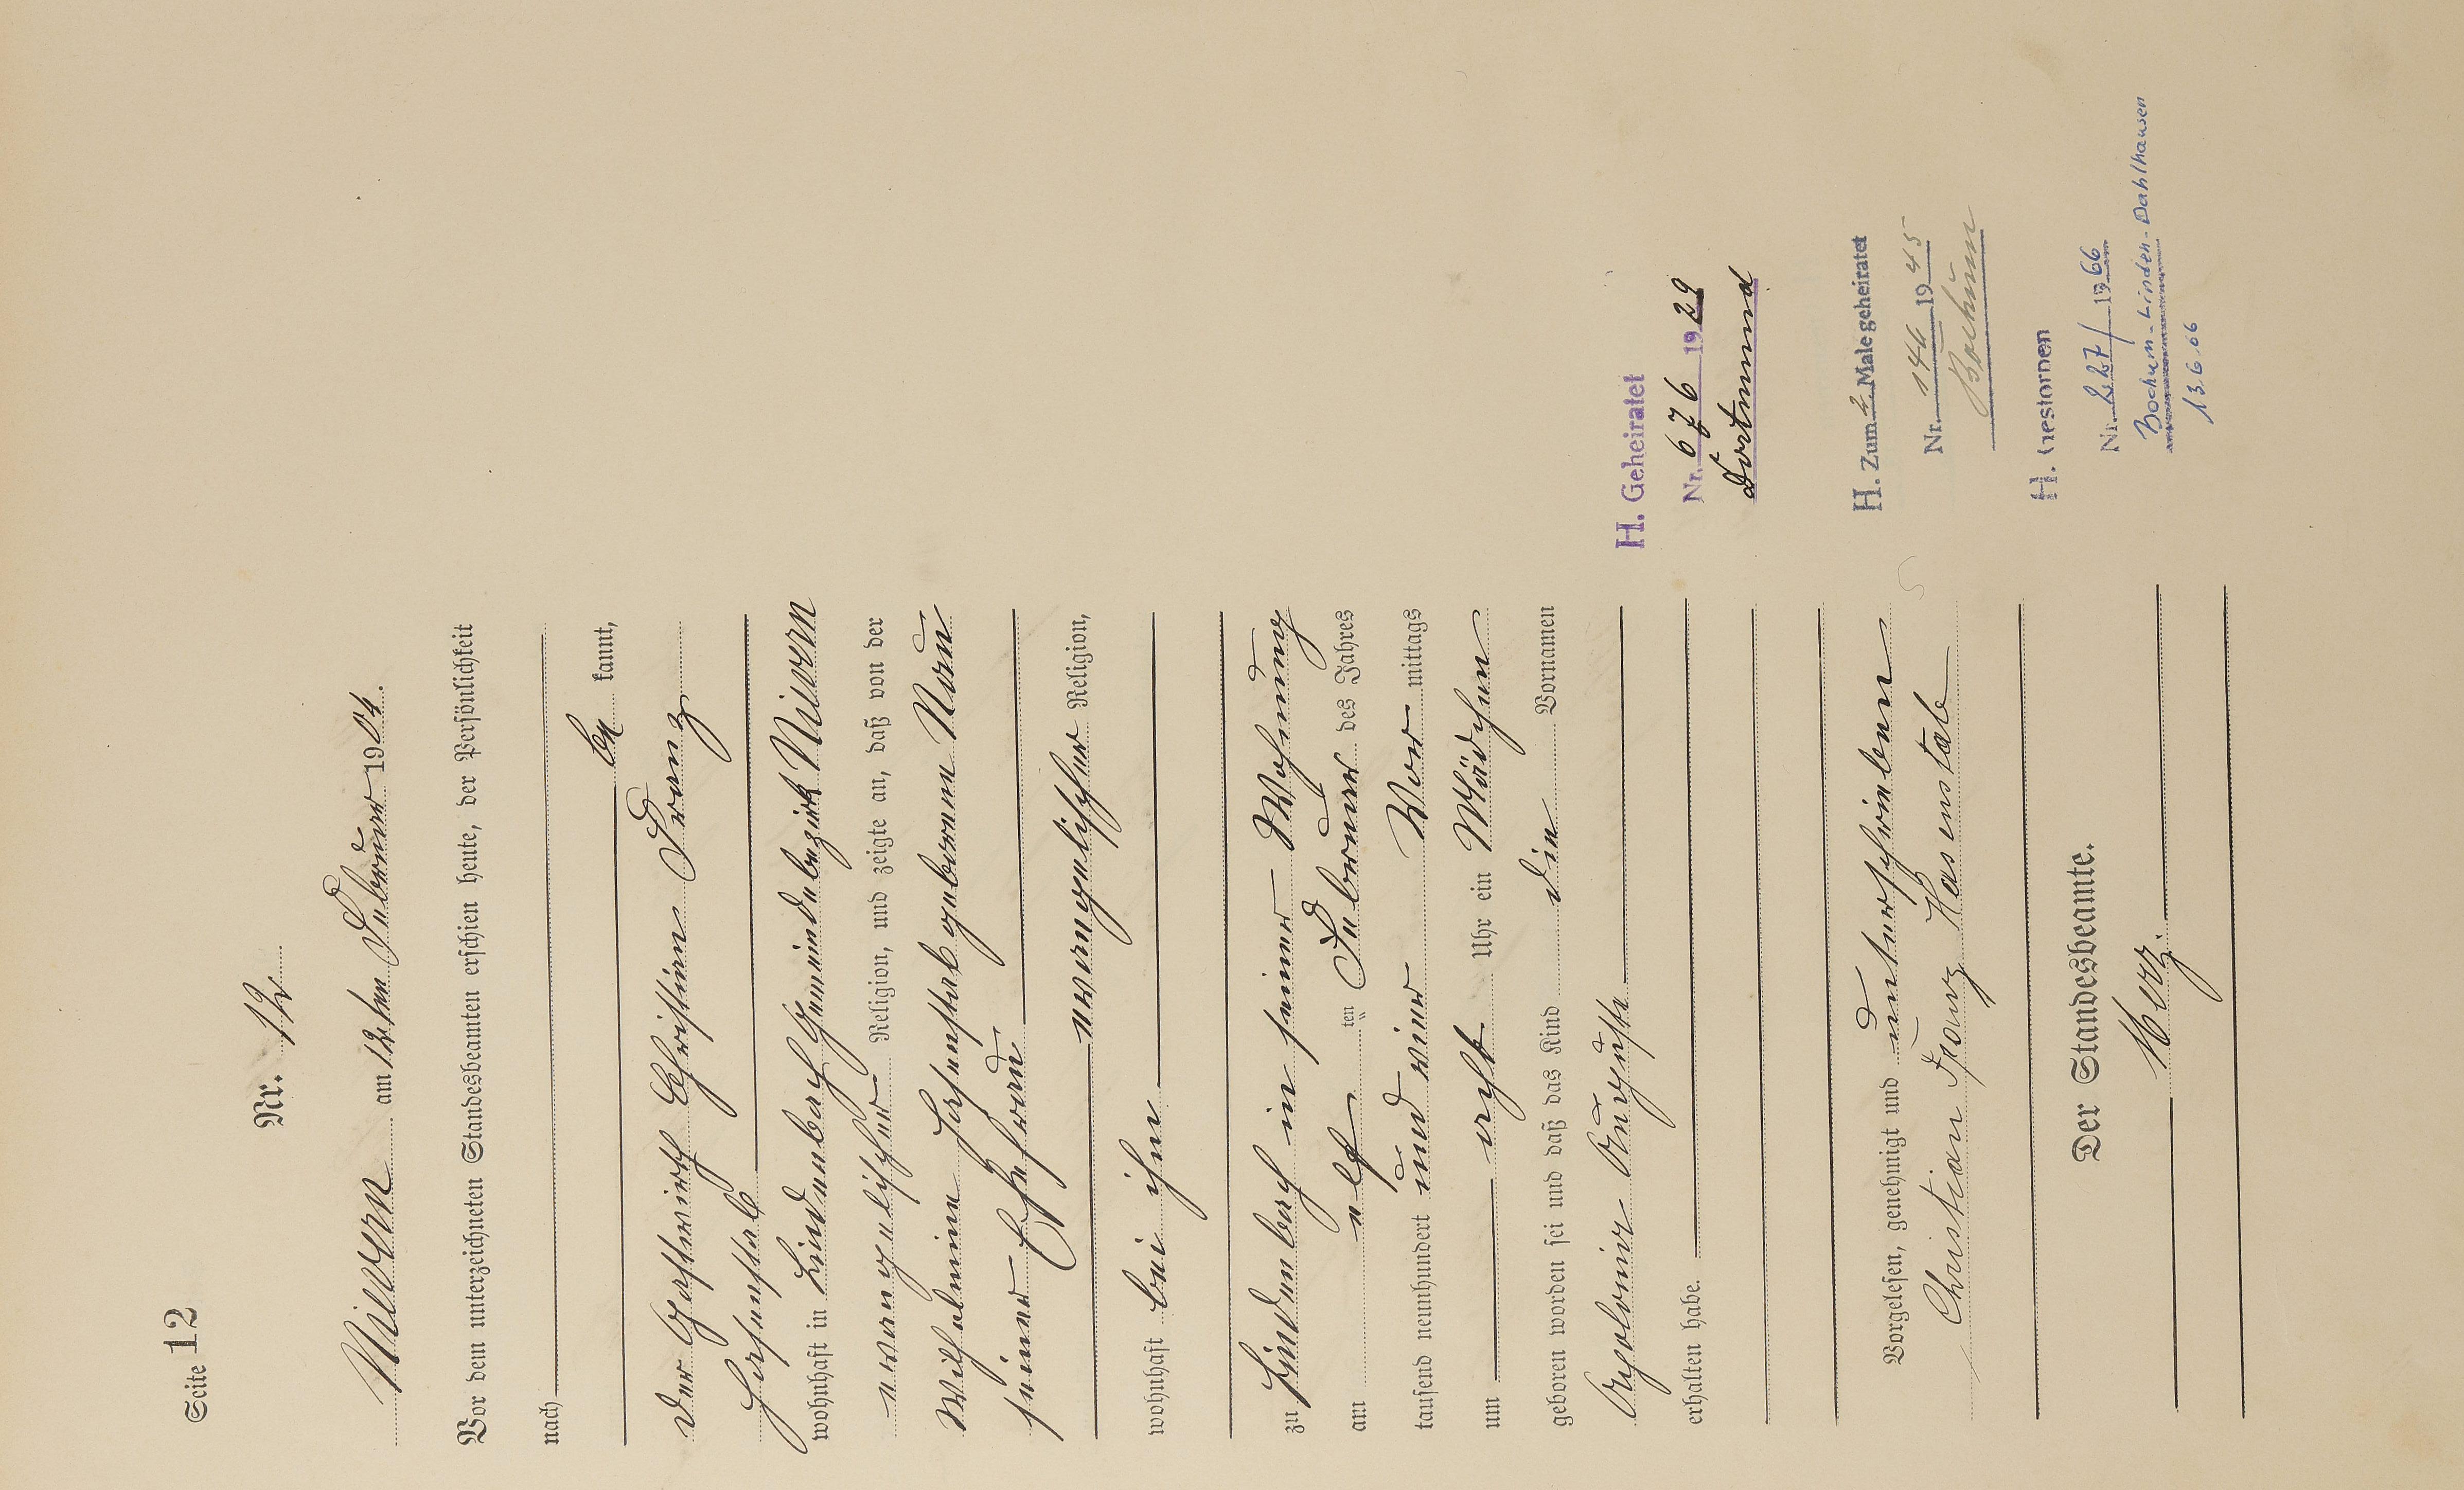 Seite 12
Nr. 12
Nievern am 12ten Februar 1904.
Vor dem unterzeichneten Standesbeamten erschien heute, der Persönlichkeit
nach
be kannt,
der Gastwirth Christian Franz
Hasenstab
wohnhaft in Lindenbach Gemeindebezirk Nievern
evangelischer Religion, und zeigte an, daß von der
Wilhelmine Hasenstab geborene
seiner Ehefrau
evangelischer Religion,
wohnhaft bei ihm
zu Lindenbach in seiner Wohnung
am elf ten Februar des Jahres
tausend neunhundert und vier Vor mittags
um acht Uhr ein Mädchen
geboren worden sei und daß das Kind die Vornamen
Auguste
erhalten habe.
Vorgelesen, genehmigt und unterschrieben
Christian Franz Hasenstab
Der Standesbeamte.
Herz.
H. Geheiratet
Nr. 676 1929
Dortmund
H. Zum 2. Male geheiratet
Nr. 144 1945
Bochum
H. Gestorben
Nr. 227/1966
Bochum-Linden-Dahlhausen
13.6.66